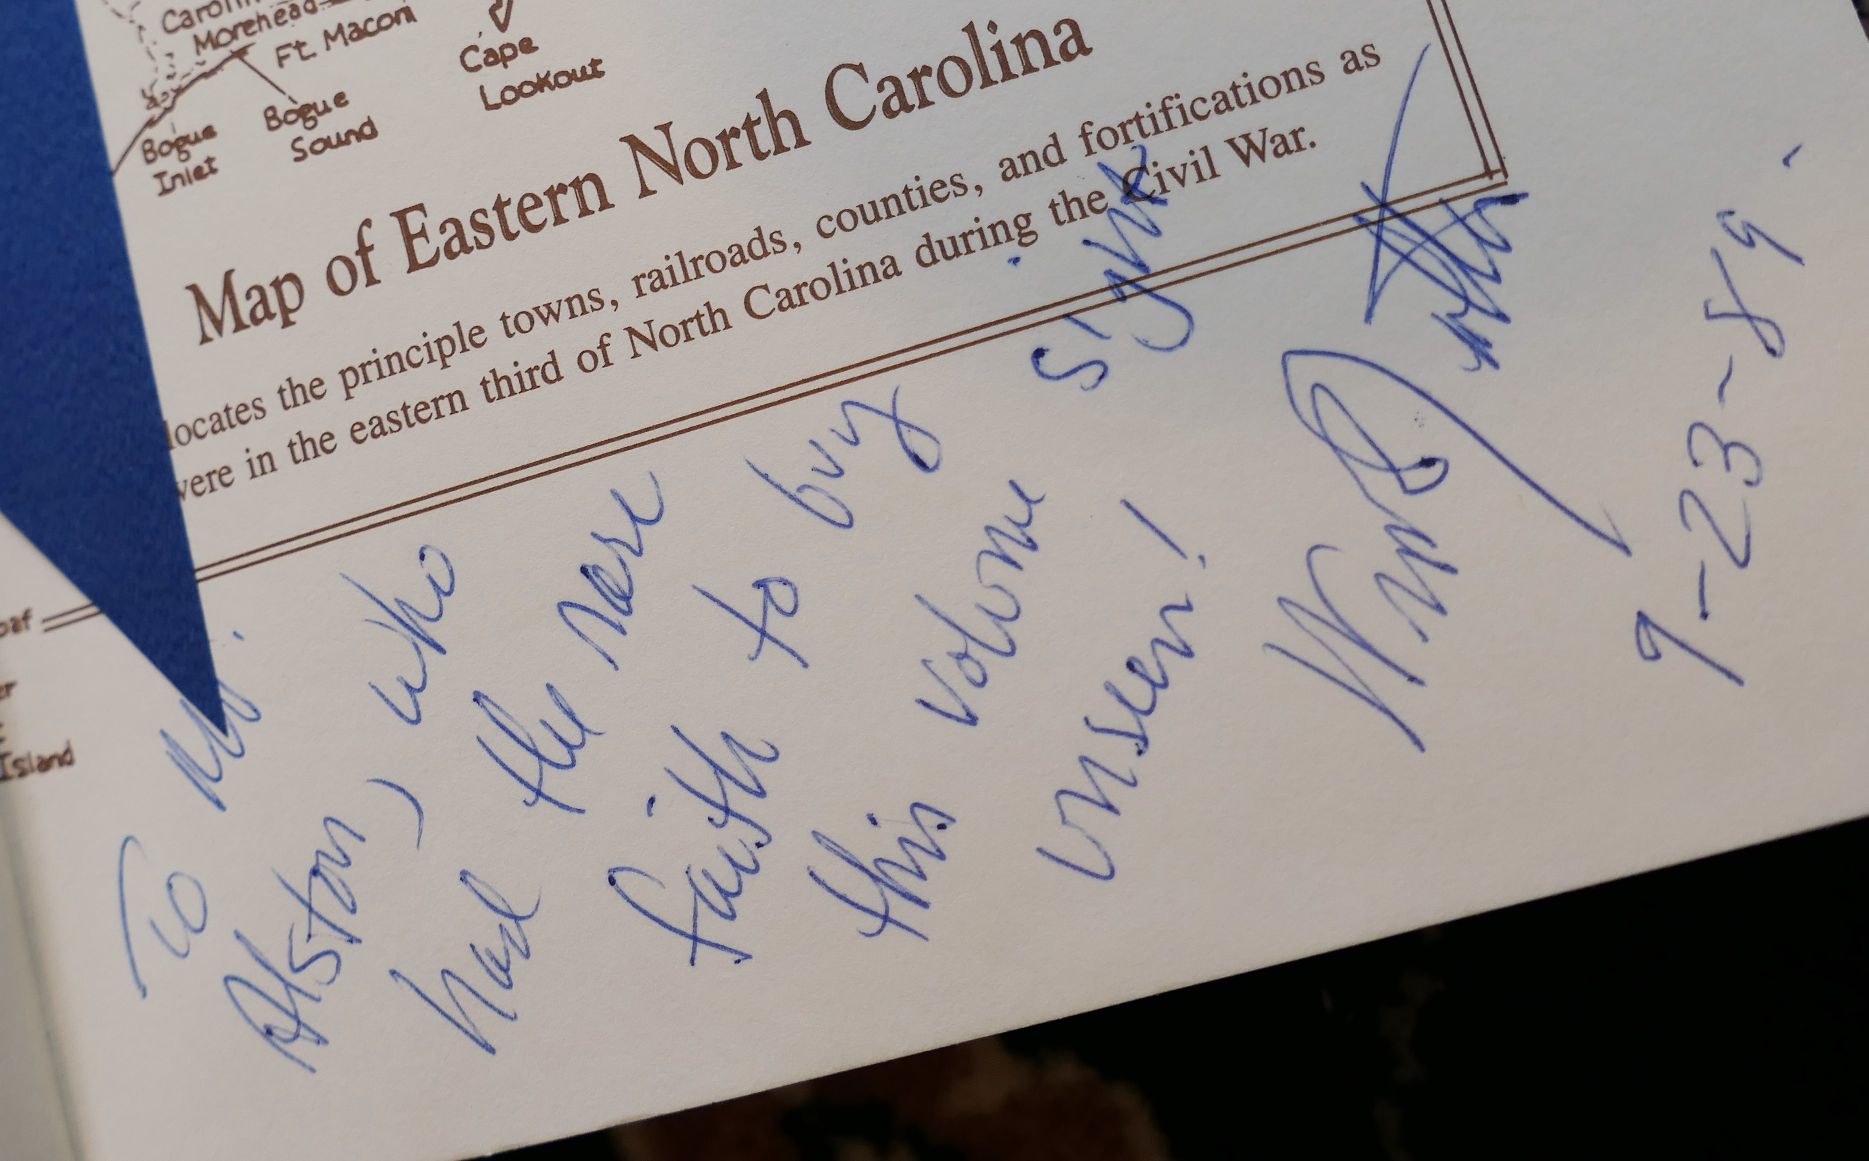 Morehead
Ft. Macon
Cape
Lookout
Bogue
Sound
Bogue
Inlet
Map of Eastern North Carolina
locates the principle towns, railroads, counties, and fortifications as
were in the eastern third of North Carolina during the Civil War.
Island
To Mr.
Alston, who
had the rare
faith to buy
this volume sight
unseen!
9-23-89.